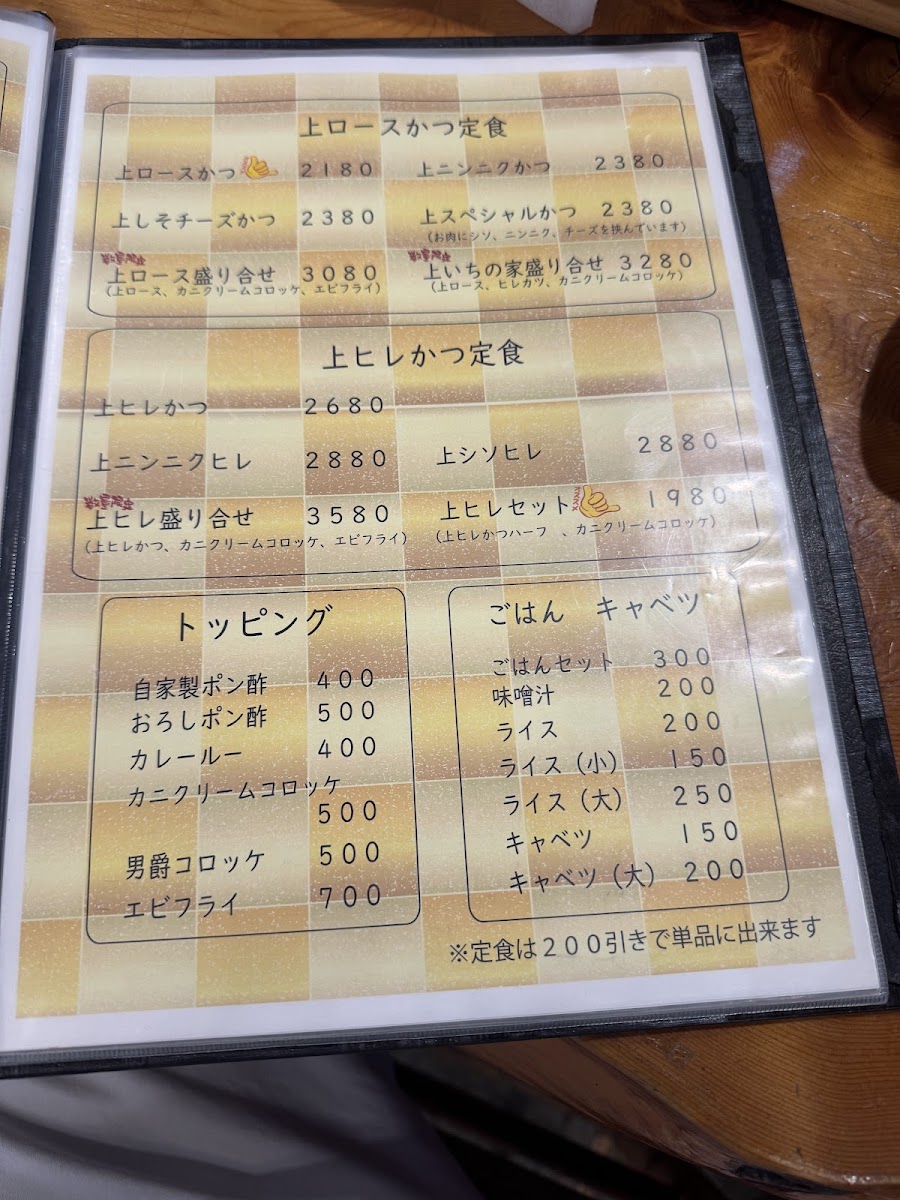 上ロースかつ定食
上ロースかつ 2180 上ニンニクかつ 2380
上しそチーズかつ 2380 上スペシャルかつ 2380
(お肉にシソ、ニンニク、チーズを挟んでいます)
数量限定 数量限定
上ロース盛り合せ 3080 上いちの家盛り合せ 3280
(上ロース、カニクリームコロッケ、エビフライ) (上ロース、ヒレカツ、カニクリームコロッケ)
上ヒレかつ定食
上ヒレかつ 2680
上ニンニクヒレ 2880 上シソヒレ 2880
数量限定
上ヒレ盛り合せ 3580 上ヒレセット 1980
(上ヒレかつ、カニクリームコロッケ、エビフライ) (上ヒレかつハーフ 、カニクリームコロッケ)
トッピング
自家製ポン酢 400
おろしポン酢 500
カレールー 400
カニクリームコロッケ
500
男爵コロッケ 500
エビフライ 700
ごはん キャベツ
ごはんセット 300
味噌汁 200
ライス 200
ライス(小) 150
ライス(大) 250
キャベツ 150
キャベツ(大) 200
※定食は200引きで単品に出来ます